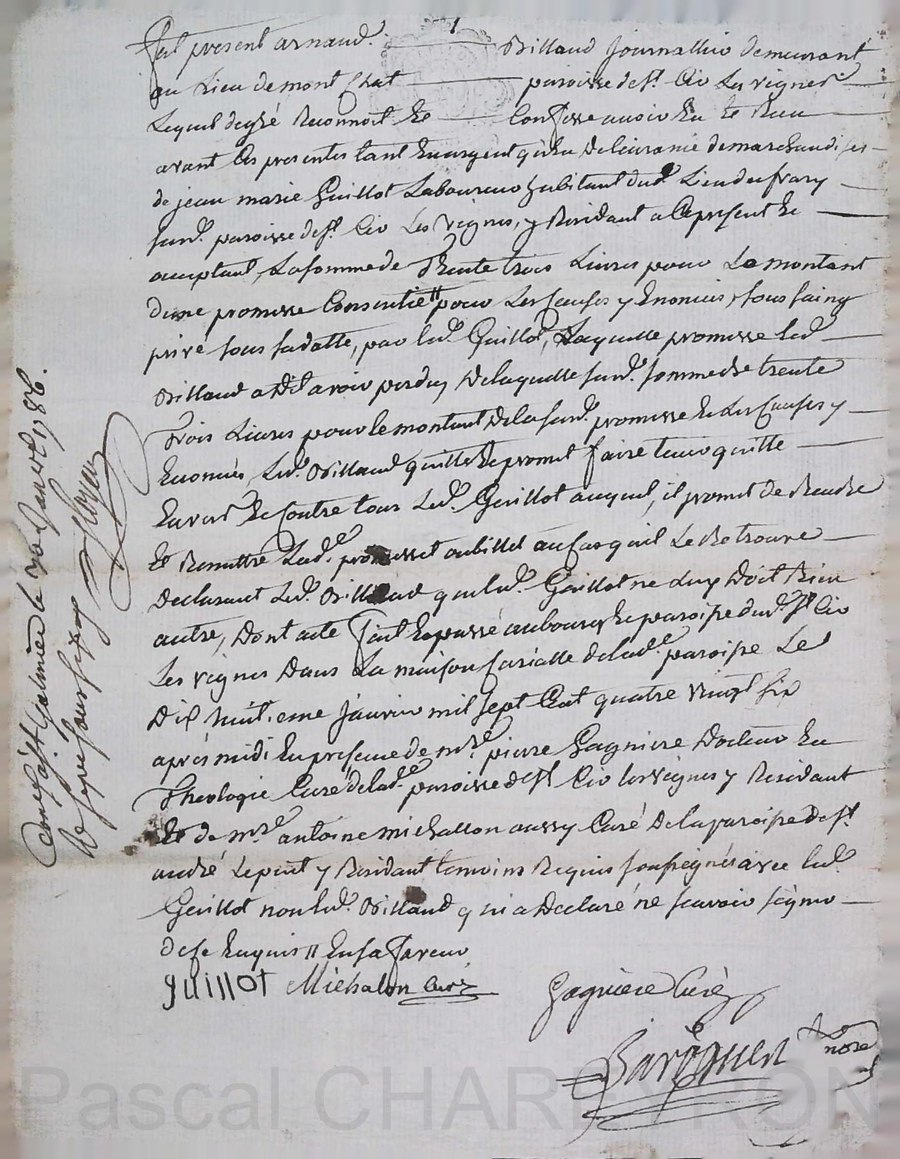 fut present arnaud Billaud journallier demeurant
au Lieu de mont Chat paroisse de st. Cir Les vignes
Lequel de gré Reconnoit Et Confesse avoir Eu Et Receu
avant Ces presentes tant En argent qu'En Delivrance de marchandises
de jean marie Guillot Laboureur habitant dud. Lieu du
surd. paroisse de st. Cir Les vignes, y Residant a Ce present Et
acceptant, La somme de Trente trois Livres pour Le montant
dune promesse Consentie pour Les Causes y Enoncées, sous saing
privé sous sa datte, par led. Guillot, Laquelle promesse led.
Billaud a Dit avoir perdu, De laquelle surd. somme de trente
Trois Livres pour le montant De la surd. promesse Et Les Causes y
Enoncées Led. Billaud quitte Et promet faire tenir quitte
Envers Et Contre tous Led. Guillot auquel, il promet de Rendre
Et Remettre Lad. promesse au Cas quil Le Retrouve
Declarant Led. Billaud que led. Guillot ne Luy Doit Rien
autre, Dont acte fait Et passé au bourg Et paroisse dud. st. Cir
Les vignes Dans La maison Curialle de lad. paroisse Le
Dix huitieme janvier mil sept Cent quatre vingt six
après midi En presence de mre. pierre Gagniere Docteur En
Theologie Curé de lad. paroisse de st. Cir les vignes y Residant
Et de mre. antoine michallon aussy Curé De la paroisse de st.
andré Le puit y Residant temoins Requis soussignés avec led.
Guillot non led. Billaud qui a Declaré ne scavoir signer
de ce Enquis En sa faveur
guillot Michalon curé
Gagniere Curé
Barquien
nore
Con le a st. Galmier le janv. 1786.
Re quinze sous
Pascal CHAREYRON